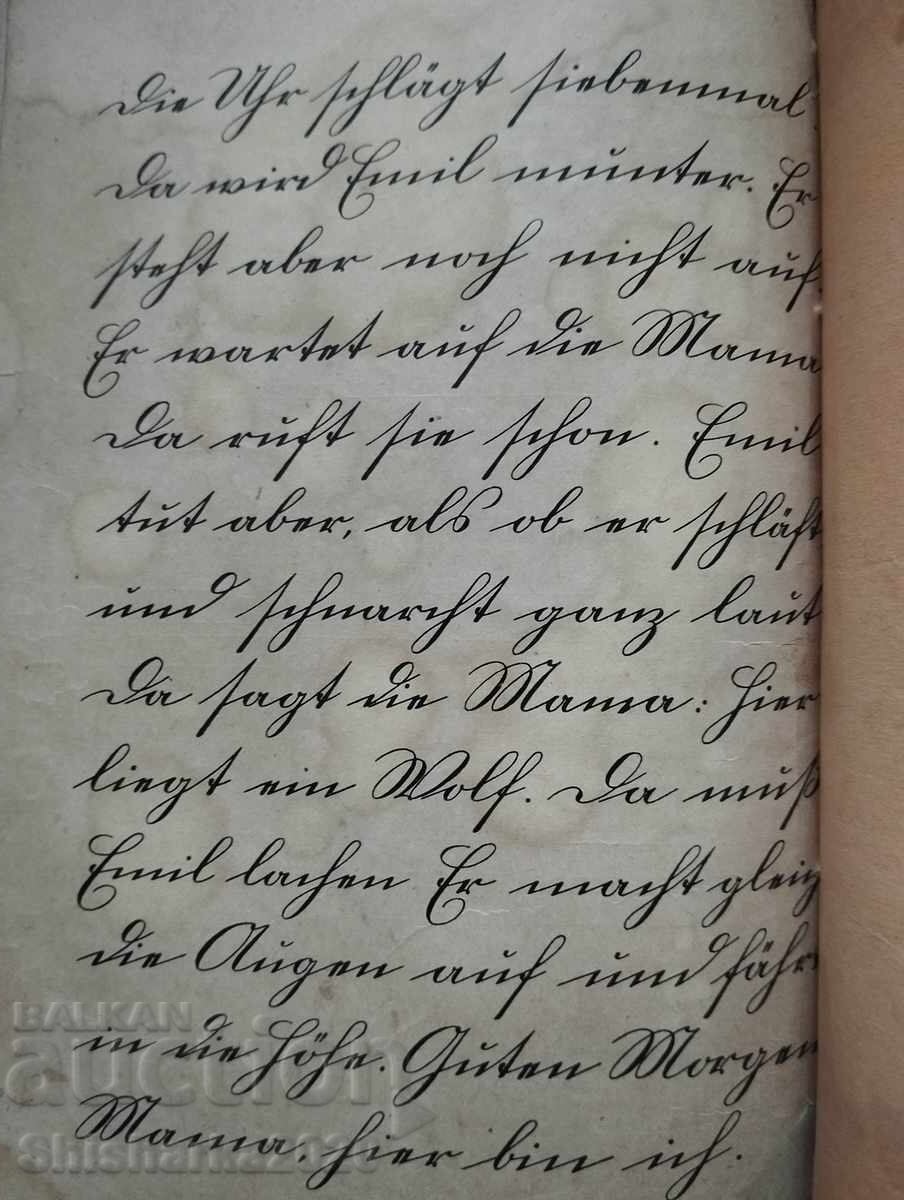 Die Uhr schlägt siebenmal.
Da wird Emil munter. Er
steht aber noch nicht auf.
Er wartet auf die Mama
Da ruft sie schon. Emil
tut aber, als ob er schläft
und schnarcht ganz laut
Da sagt die Mama: Hier
liegt ein Wolf. Da muß
Emil lachen Er macht gleich
die Augen auf und fährt
in die Höhe. Guten Morgen
Mama, hier bin ich.
BALKAN
auction